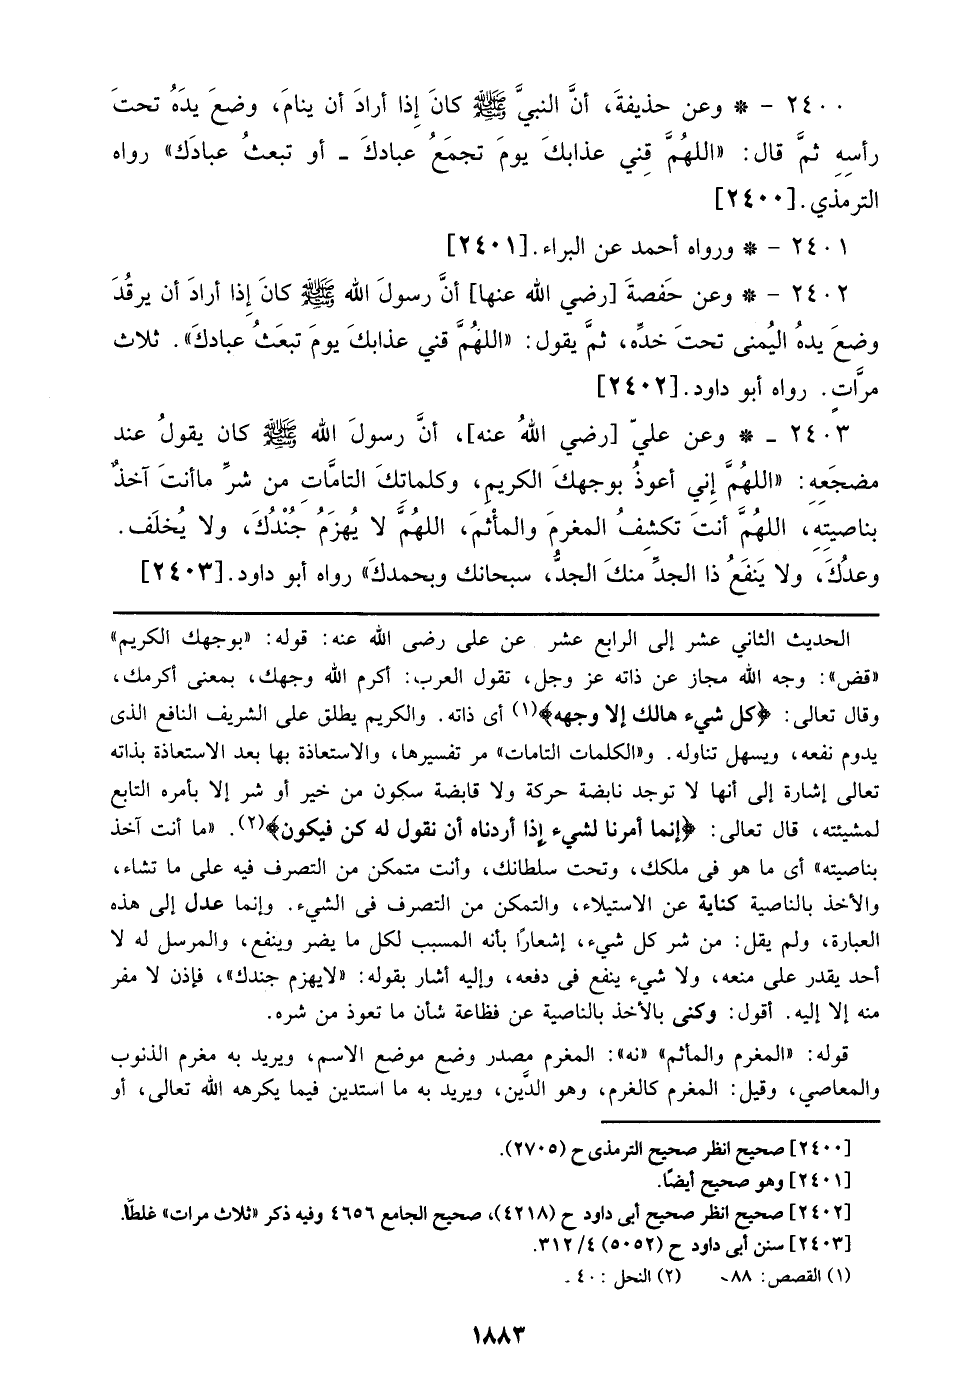 ٢٤٠٠ – * وعن حذيفةَ، أنَّ النبيَّ ﷺ كانَ إِذا أرادَ أن ينامَ، وضعَ يدَهُ تحتَ
رأسِهِ ثمَّ قال: «اللهُمَّ قِني عذابكَ يومَ تجمَعُ عبادكَ ـ أو تبعثُ عبادَك» رواه
الترمذي.[٢٤٠٠]
٢٤٠١ – * ورواه أحمد عن البراء.[٢٤٠١]
٢٤٠٢ – * وعن حَفصةَ [رضي الله عنها] أنَّ رسولَ الله ﷺ كانَ إِذا أرادَ أن يرقُدَ
وضعَ يدهُ اليُمنى تحتَ خدِّه، ثمَّ يقول: «اللهُمَّ قني عذابكَ يومَ تبعَثُ عبادكَ». ثلاث
مرَّاتٍ. رواه أبو داود.[٢٤٠٢]
٢٤٠٣ ـ * وعن عليّ [رضي اللهُ عنه]، أنَّ رسولَ الله ﷺ كان يقولُ عند
مضجَعِه: «اللهُمَّ إِني أعوذُ بوجهكَ الكريمِ، وكلماتكَ التامَّاتِ من شرِّ ماأنتَ آخذٌ
بناصيتِهِ، اللهُمَّ أنتَ تكشِفُ المغرمَ والمأْثمَ، اللهُمَّ لا يُهزَمُ جُنْدُكَ، ولا يُخلَف.
وعدُكَ، ولا يَنفَعُ ذا الجدِّ منكَ الجدُّ، سبحانك وبحمدكَ» رواه أبو داود.[٢٤٠٣]
الحديث الثاني عشر إلى الرابع عشر عن على رضى الله عنه: قوله: «بوجهك الكريم»
«قض»: وجه الله مجاز عن ذاته عز وجل، تقول العرب: أكرم الله وجهك، بمعنى أكرمك،
وقال تعالى: ﴿كل شيء هالك إلا وجهه﴾(١) أى ذاته. والكريم يطلق على الشريف النافع الذى
يدوم نفعه، ويسهل تناوله. و«الكلمات التامات» مر تفسيرها، والاستعاذة بها بعد الاستعاذة بذاته
تعالى إشارة إلى أنها لا توجد نابضة حركة ولا قابضة سكون من خير أو شر إلا بأمره التابع
لمشيئته، قال تعالى: ﴿إنما أمرنا لشيء إذا أردناه أن نقول له كن فيكون﴾(٢). «ما أنت آخذ
بناصيته» أى ما هو فى ملكك، وتحت سلطانك، وأنت متمكن من التصرف فيه على ما تشاء،
والأخذ بالناصية كناية عن الاستيلاء، والتمكن من التصرف فى الشيء. وإنما عدل إلى هذه
العبارة، ولم يقل: من شر كل شيء، إشعارًا بأنه المسبب لكل ما يضر وينفع، والمرسل له لا
أحد يقدر على منعه، ولا شيء ينفع فى دفعه، وإليه أشار بقوله: «لايهزم جندك»، فإذن لا مفر
منه إلا إليه. أقول: وكنى بالأخذ بالناصية عن فظاعة شأن ما تعوذ من شره.
قوله: «المغرم والمأثم» «نه»: المغرم مصدر وضع موضع الاسم، ويريد به مغرم الذنوب
والمعاصي، وقيل: المغرم كالغرم، وهو الدَّين، ويريد به ما استدين فيما يكرهه الله تعالى، أو
[٢٤٠٠] صحيح انظر صحيح الترمذى ح (٢٧٠٥).
[٢٤٠١] وهو صحيح أيضًا.
[٢٤٠٢] صحيح انظر صحيح أبى داود ح (٤٢١٨)، صحيح الجامع ٤٦٥٦ وفيه ذكر «ثلاث مرات» غلطًا.
[٢٤٠٣] سنن أبى داود ح (٥٠٥٢) ٣١٢/٤.
(١) القصص: ٨٨. (٢) النحل: ٤٠.
١٨٨٣